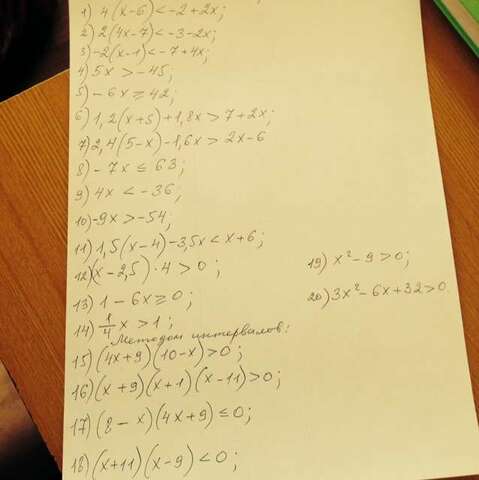 1) 4(x-6)<-2+2x;
2) 2(4x-7)<-3-2x;
3) -2(x-1)<-7+4x;
4) 5x>-45;
5) -6x≥42;
6) 1,2(x+5)+1,8x>7+2x;
7) 2,4(5-x)-1,6x>2x-6
8) -7x≤63;
9) 4x<-36;
10) -9x>-54;
11) 1,5(x-4)-3,5x<x+6;
12) (x-2,5)·4>0;
13) 1-6x≥0;
14) 1/4 x>1;
Методом интервалов:
15) (4x+9)(10-x)>0;
16) (x+9)(x+1)(x-11)>0;
17) (8-x)(4x+9)≤0;
18) (x+11)(x-9)<0;
19) x²-9>0;
20) 3x²-6x+32>0.